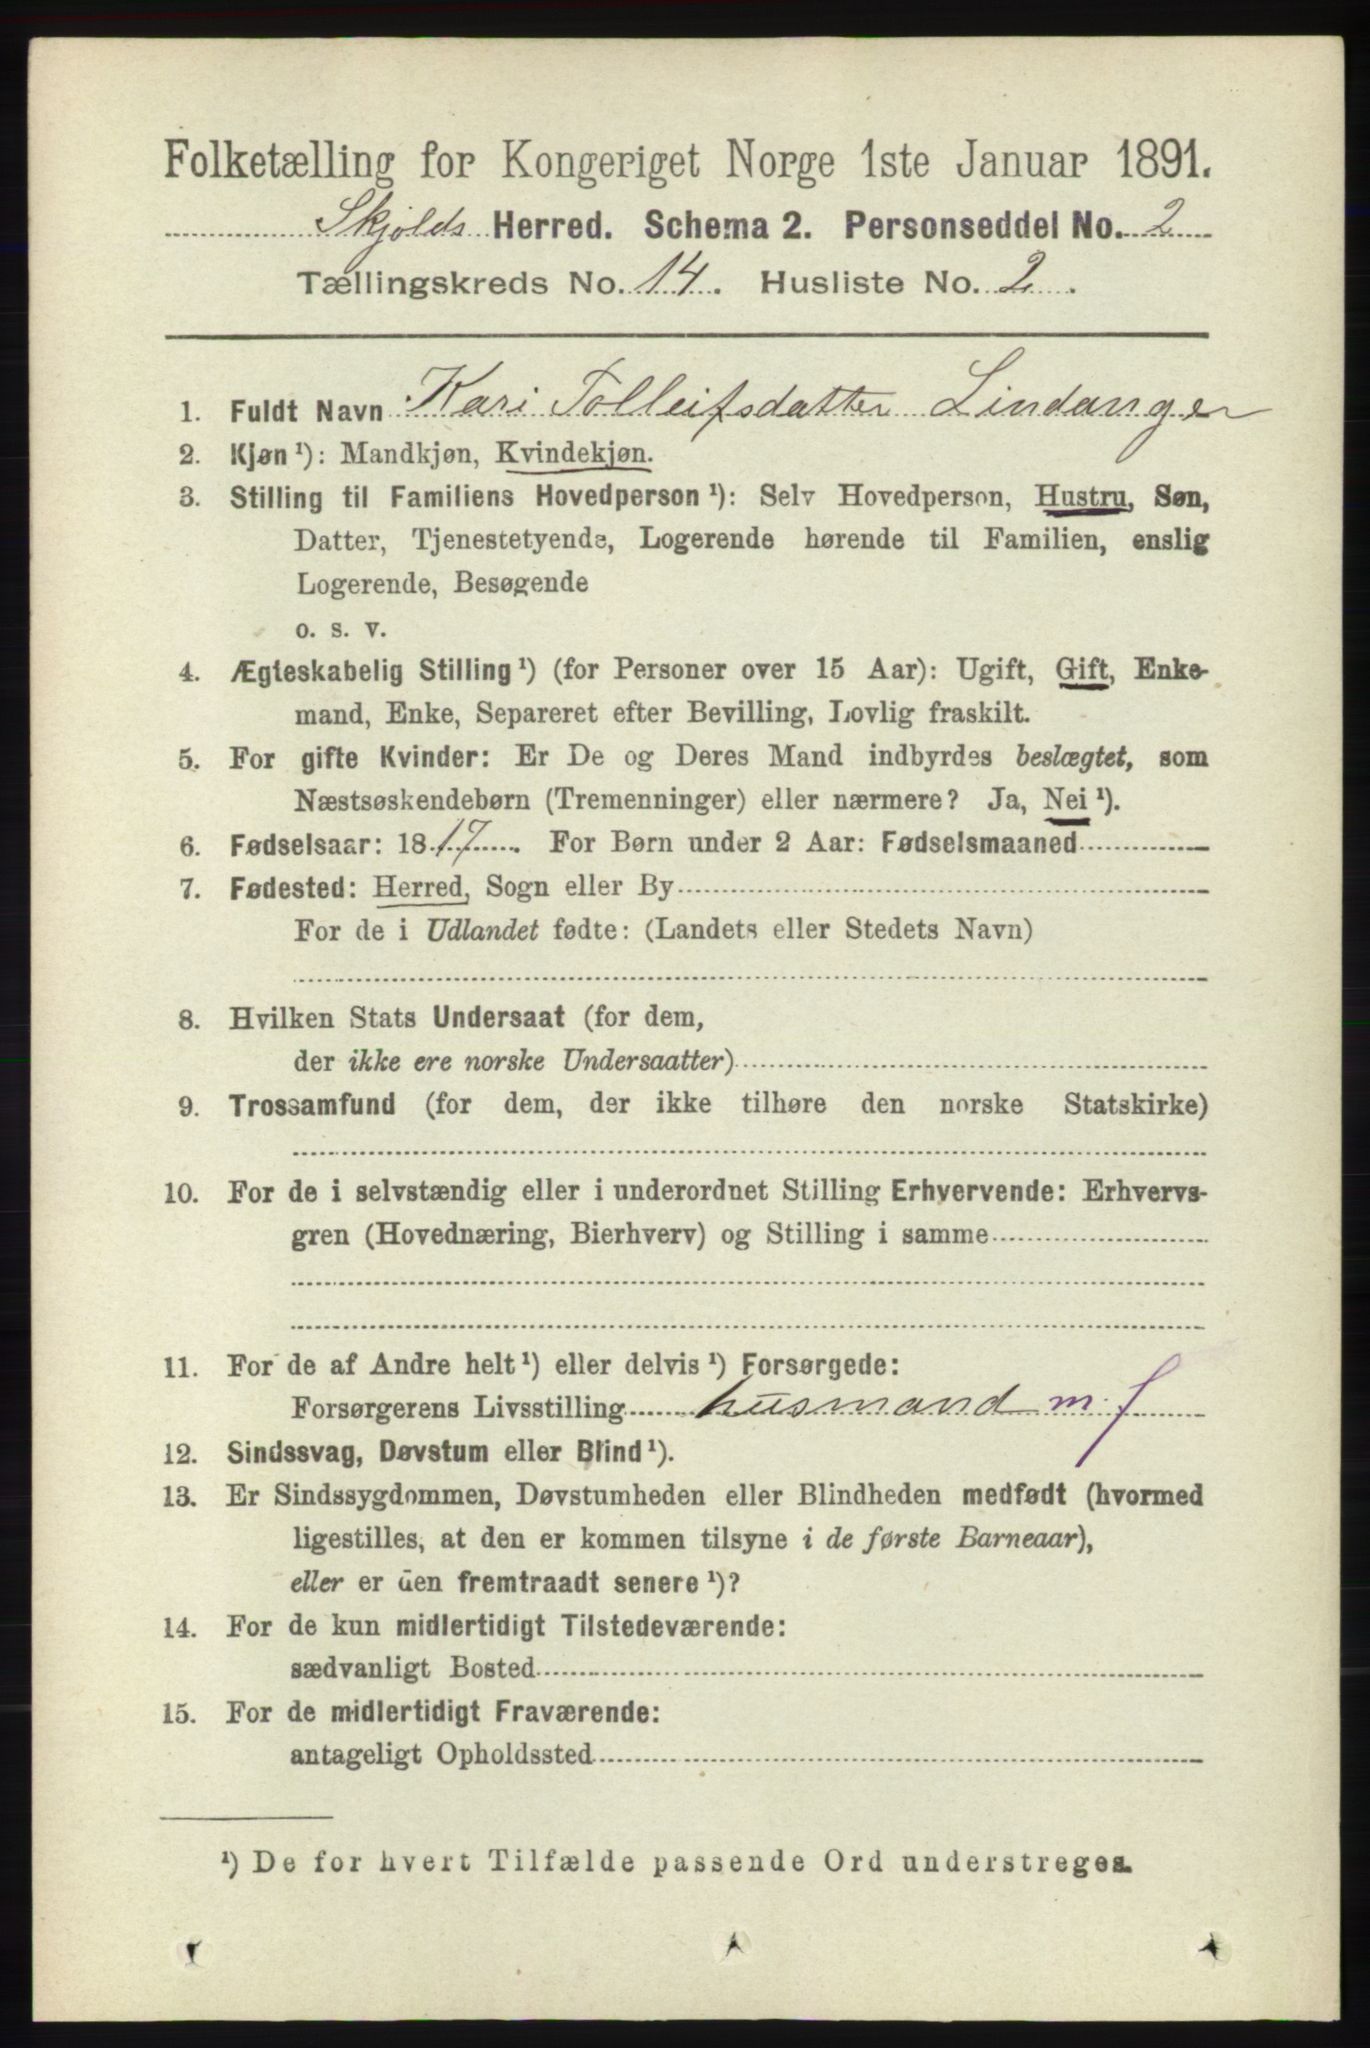 Folketælling for Kongeriget Norge 1ste Januar 1891.
Skjolds Herred. Schema 2. Personseddel No. 2
Tællingskreds No. 14. Husliste No. 2.
1. Fuldt Navn Kari Tolleifsdatter Lindanger
2. Kjøn¹): Mandkjøn, Kvindekjøn.
3. Stilling til Familiens Hovedperson¹): Selv Hovedperson, Hustru, Søn,
Datter, Tjenestetyende, Logerende hørende til Familien, enslig
Logerende, Besøgende
o. s. v.
4. Ægteskabelig Stilling¹) (for Personer over 15 Aar): Ugift, Gift, Enke-
mand, Enke, Separeret efter Bevilling, Lovlig fraskilt.
5. For gifte Kvinder: Er De og Deres Mand indbyrdes beslægtet, som
Næstsøskendebørn (Tremenninger) eller nærmere? Ja, Nei¹).
6. Fødselsaar: 1817. For Børn under 2 Aar: Fødselsmaaned
7. Fødested: Herred, Sogn eller By
For de i Udlandet fødte: (Landets eller Stedets Navn)
8. Hvilken Stats Undersaat (for dem,
der ikke ere norske Undersaatter)
9. Trossamfund (for dem, der ikke tilhøre den norske Statskirke)
10. For de i selvstændig eller i underordnet Stilling Erhvervende: Erhvervs-
gren (Hovednæring, Bierhverv) og Stilling i samme
11. For de af Andre helt¹) eller delvis¹) Forsørgede:
Forsørgerens Livsstilling husmand m. J
12. Sindssvag, Døvstum eller Blind¹).
13. Er Sindssygdommen, Døvstumheden eller Blindheden medfødt (hvormed
ligestilles, at den er kommen tilsyne i de første Barneaar),
eller er den fremtraadt senere¹)?
14. For de kun midlertidigt Tilstedeværende:
sædvanligt Bosted
15. For de midlertidigt Fraværende:
antageligt Opholdssted
¹) De for hvert Tilfælde passende Ord understreges.